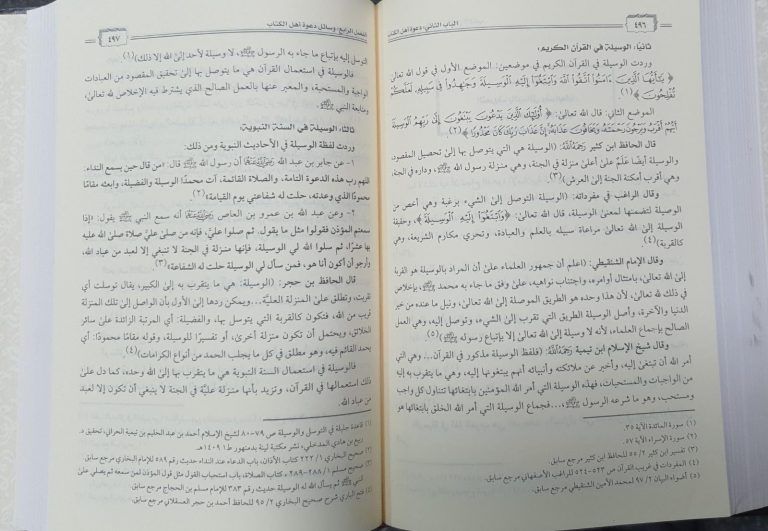 ٤٩٦
الباب الثاني: دعوة أهل الكتاب
ثانيًا: الوسيلة في القرآن الكريم:
وردت الوسيلة في القرآن الكريم في موضعين: الموضع الأول في قول الله تعالى
﴿ يَتَأَيُّهَا الَّذِينَ ءَامَنُوا اتَّقُوا اللَّهَ وَابْتَغُوا إِلَيْهِ الْوَسِيلَةَ وَجَهِدُوا فِي سَبِيلِهِ لَعَلَّكُمْ
تُفْلِحُونَ ﴾(١).
الموضع الثاني: قال الله تعالى: ﴿ أُولَٰئِكَ الَّذِينَ يَدْعُونَ يَبْتَغُونَ إِلَىٰ رَبِّهِمُ الْوَسِيلَةَ
أَيُّهُمْ أَقْرَبُ وَيَرْجُونَ رَحْمَتَهُ وَيَخَافُونَ عَذَابَهُ إِنَّ عَذَابَ رَبِّكَ كَانَ مَحْذُورًا ﴾(٢).
قال الحافظ ابن كثير رَحِمَهُ اللَّهُ: (الوسيلة هي التي يتوصل بها إلى تحصيل المقصود،
والوسيلة أيضًا عَلَمٌ على أعلى منزلة في الجنة، وهي منزلة رسول الله ﷺ، وداره في الجنة،
وهي أقرب أمكنة الجنة إلى العرش)(٣).
وقال الراغب في مفرداته: (الوسيلة التوصل إلى الشيء برغبة وهي أخص من
الوصيلة لتضمنها لمعنى الوسيلة، قال الله تعالى: ﴿وَابْتَغُوا إِلَيْهِ الْوَسِيلَةَ﴾، وحقيقة
الوسيلة إلى الله تعالى مراعاة سبيله بالعلم والعبادة، وتحري مكارم الشريعة، وهي
كالقربة)(٤).
وقال الإمام الشنقيطي: (اعلم أن جمهور العلماء على أن المراد بالوسيلة هو القربة
إلى الله تعالى، بامتثال أوامره، واجتناب نواهيه، على وفق ما جاء به محمد ﷺ بإخلاص
في ذلك لله تعالى، لأن هذا وحده هو الطريق الموصلة إلى الله تعالى، ونيل ما عنده من خير
الدنيا والآخرة، وأصل الوسيلة الطريق التي تقرب إلى الشيء، وتوصل إليه، وهي العمل
الصالح بإجماع العلماء، لأنه لا وسيلة إلى الله تعالى إلا بإتباع رسوله ﷺ)(٥).
وقال شيخ الإسلام ابن تيمية رَحِمَهُ اللَّهُ: (فلفظ الوسيلة مذكور في القرآن... وهي التي
أمر الله أن تبتغى إليه، وأخبر عن ملائكته وأنبيائه أنهم يبتغونها إليه، وهي ما يتقرب به إليه
من الواجبات والمستحبات، فهذه الوسيلة التي أمر الله المؤمنين بابتغائها تتناول كل واجب
ومستحب، وهو ما شرعه الرسول ﷺ...فجماع الوسيلة التي أمر الله الخلق بابتغائها هو
(١) سورة المائدة الآية ٣٥.
(٢) سورة الإسراء الآية ٥٧.
(٣) تفسير ابن كثير ٢/ ٥٥ للحافظ ابن كثير مرجع سابق.
(٤) المفردات في غريب القرآن ص ٥٢٣-٥٢٤ للراغب الأصفهاني مرجع سابق.
(٥) أضواء البيان ٢/ ٩٧ لمحمد الأمين الشنقيطي مرجع سابق.
الفصل الرابع: وسائل دعوة أهل الكتاب
٤٩٧
التوسل إليه بإتباع ما جاء به الرسول ﷺ، لا وسيلة لأحد إلى الله إلا ذلك)(١).
فالوسيلة في استعمال القرآن هي ما يتوصل بها إلى تحقيق المقصود من العبادات
الواجبة والمستحبة، والمعبر عنها بالعمل الصالح الذي يشترط فيه الإخلاص لله تعالى،
ومتابعة النبي ﷺ.
ثالثًا: الوسيلة في السنة النبوية:
وردت لفظة الوسيلة في الأحاديث النبوية ومن ذلك:
١- عن جابر بن عبد الله رَضِيَ اللَّهُ عَنْهُ أن رسول الله ﷺ قال: «من قال حين يسمع النداء:
اللهم رب هذه الدعوة التامة، والصلاة القائمة، آت محمدًا الوسيلة والفضيلة، وابعثه مقامًا
محمودًا الذي وعدته، حلت له شفاعتي يوم القيامة»(٢).
٢- وعن عبد الله بن عمرو بن العاص رَضِيَ اللَّهُ عَنْهُ أنه سمع النبي ﷺ يقول: «إذا
سمعتم المؤذن فقولوا مثل ما يقول، ثم صلوا عليّ، فإنه من صلى عليّ صلاة صلى الله عليه
بها عشرًا، ثم سلوا الله لي الوسيلة، فإنها منزلة في الجنة لا تنبغي إلا لعبد من عباد الله،
وأرجو أن أكون أنا هو، فمن سأل لي الوسيلة حلت له الشفاعة»(٣).
قال الحافظ بن حجر: (الوسيلة: هي ما يتقرب به إلى الكبير، يقال توسلت أي
تقربت، وتطلق على المنزلة العليَّة...ويمكن ردها إلى الأول بأن الواصل إلى تلك المنزلة
قريب من الله، فتكون كالقربة التي يتوسل بها، والفضيلة: أي المرتبة الزائدة على سائر
الخلائق، ويحتمل أن تكون منزلة أخرى، أو تفسيرًا للوسيلة، وقوله مقامًا محمودًا: أي
يحمد القائم فيه، وهو مطلق في كل ما يجلب الحمد من أنواع الكرامات)(٤).
فالوسيلة في استعمال السنة النبوية هي ما يتقرب بها إلى الله وحده، كما دل على
ذلك استعمالها في القرآن، وتزيد بأنها منزلة عليَّة في الجنة لا ينبغي أن تكون إلا لعبد
من عباد الله.
(١) قاعدة جليلة في التوسل والوسيلة ص ٧٩-٨٠ لشيخ الإسلام أحمد بن عبد الحليم بن تيمية الحراني، تحقيق د.
ربيع بن هادي المدخلي، نشر مكتبة لينة بدمنهور ط١ ١٤٠٩هـ.
(٢) صحيح البخاري ١/ ٢٢٢ كتاب الأذان، باب الدعاء عند النداء حديث رقم ٥٨٩ للإمام البخاري مرجع سابق.
(٣) صحيح مسلم ١/ ٢٨٨-٢٨٩، كتاب الصلاة، باب استحباب القول مثل قول المؤذن لمن سمعه ثم يصلي على
النبي ﷺ ثم يسأل الله له الوسيلة حديث رقم ٣٨٣ للإمام مسلم بن الحجاج مرجع سابق.
(٤) فتح الباري شرح صحيح البخاري ٢/ ٩٥ للحافظ أحمد بن حجر العسقلاني مرجع سابق.